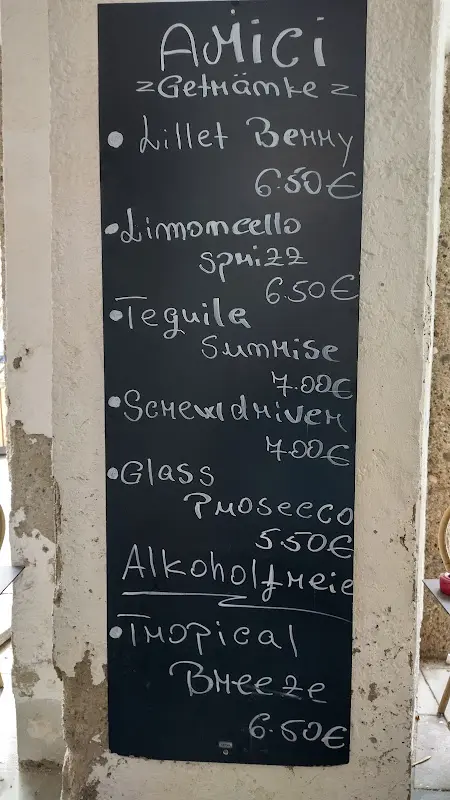 AMici
Getränke
• Lillet Berry
6.50€
• Limoncello
Sprizz
6.50€
• Tequila
Sunrise
7.00€
• Screwdriver
7.00€
• Glass
Prosecco
5.50€
Alkoholfreie
• Tropical
Breeze
6.50€